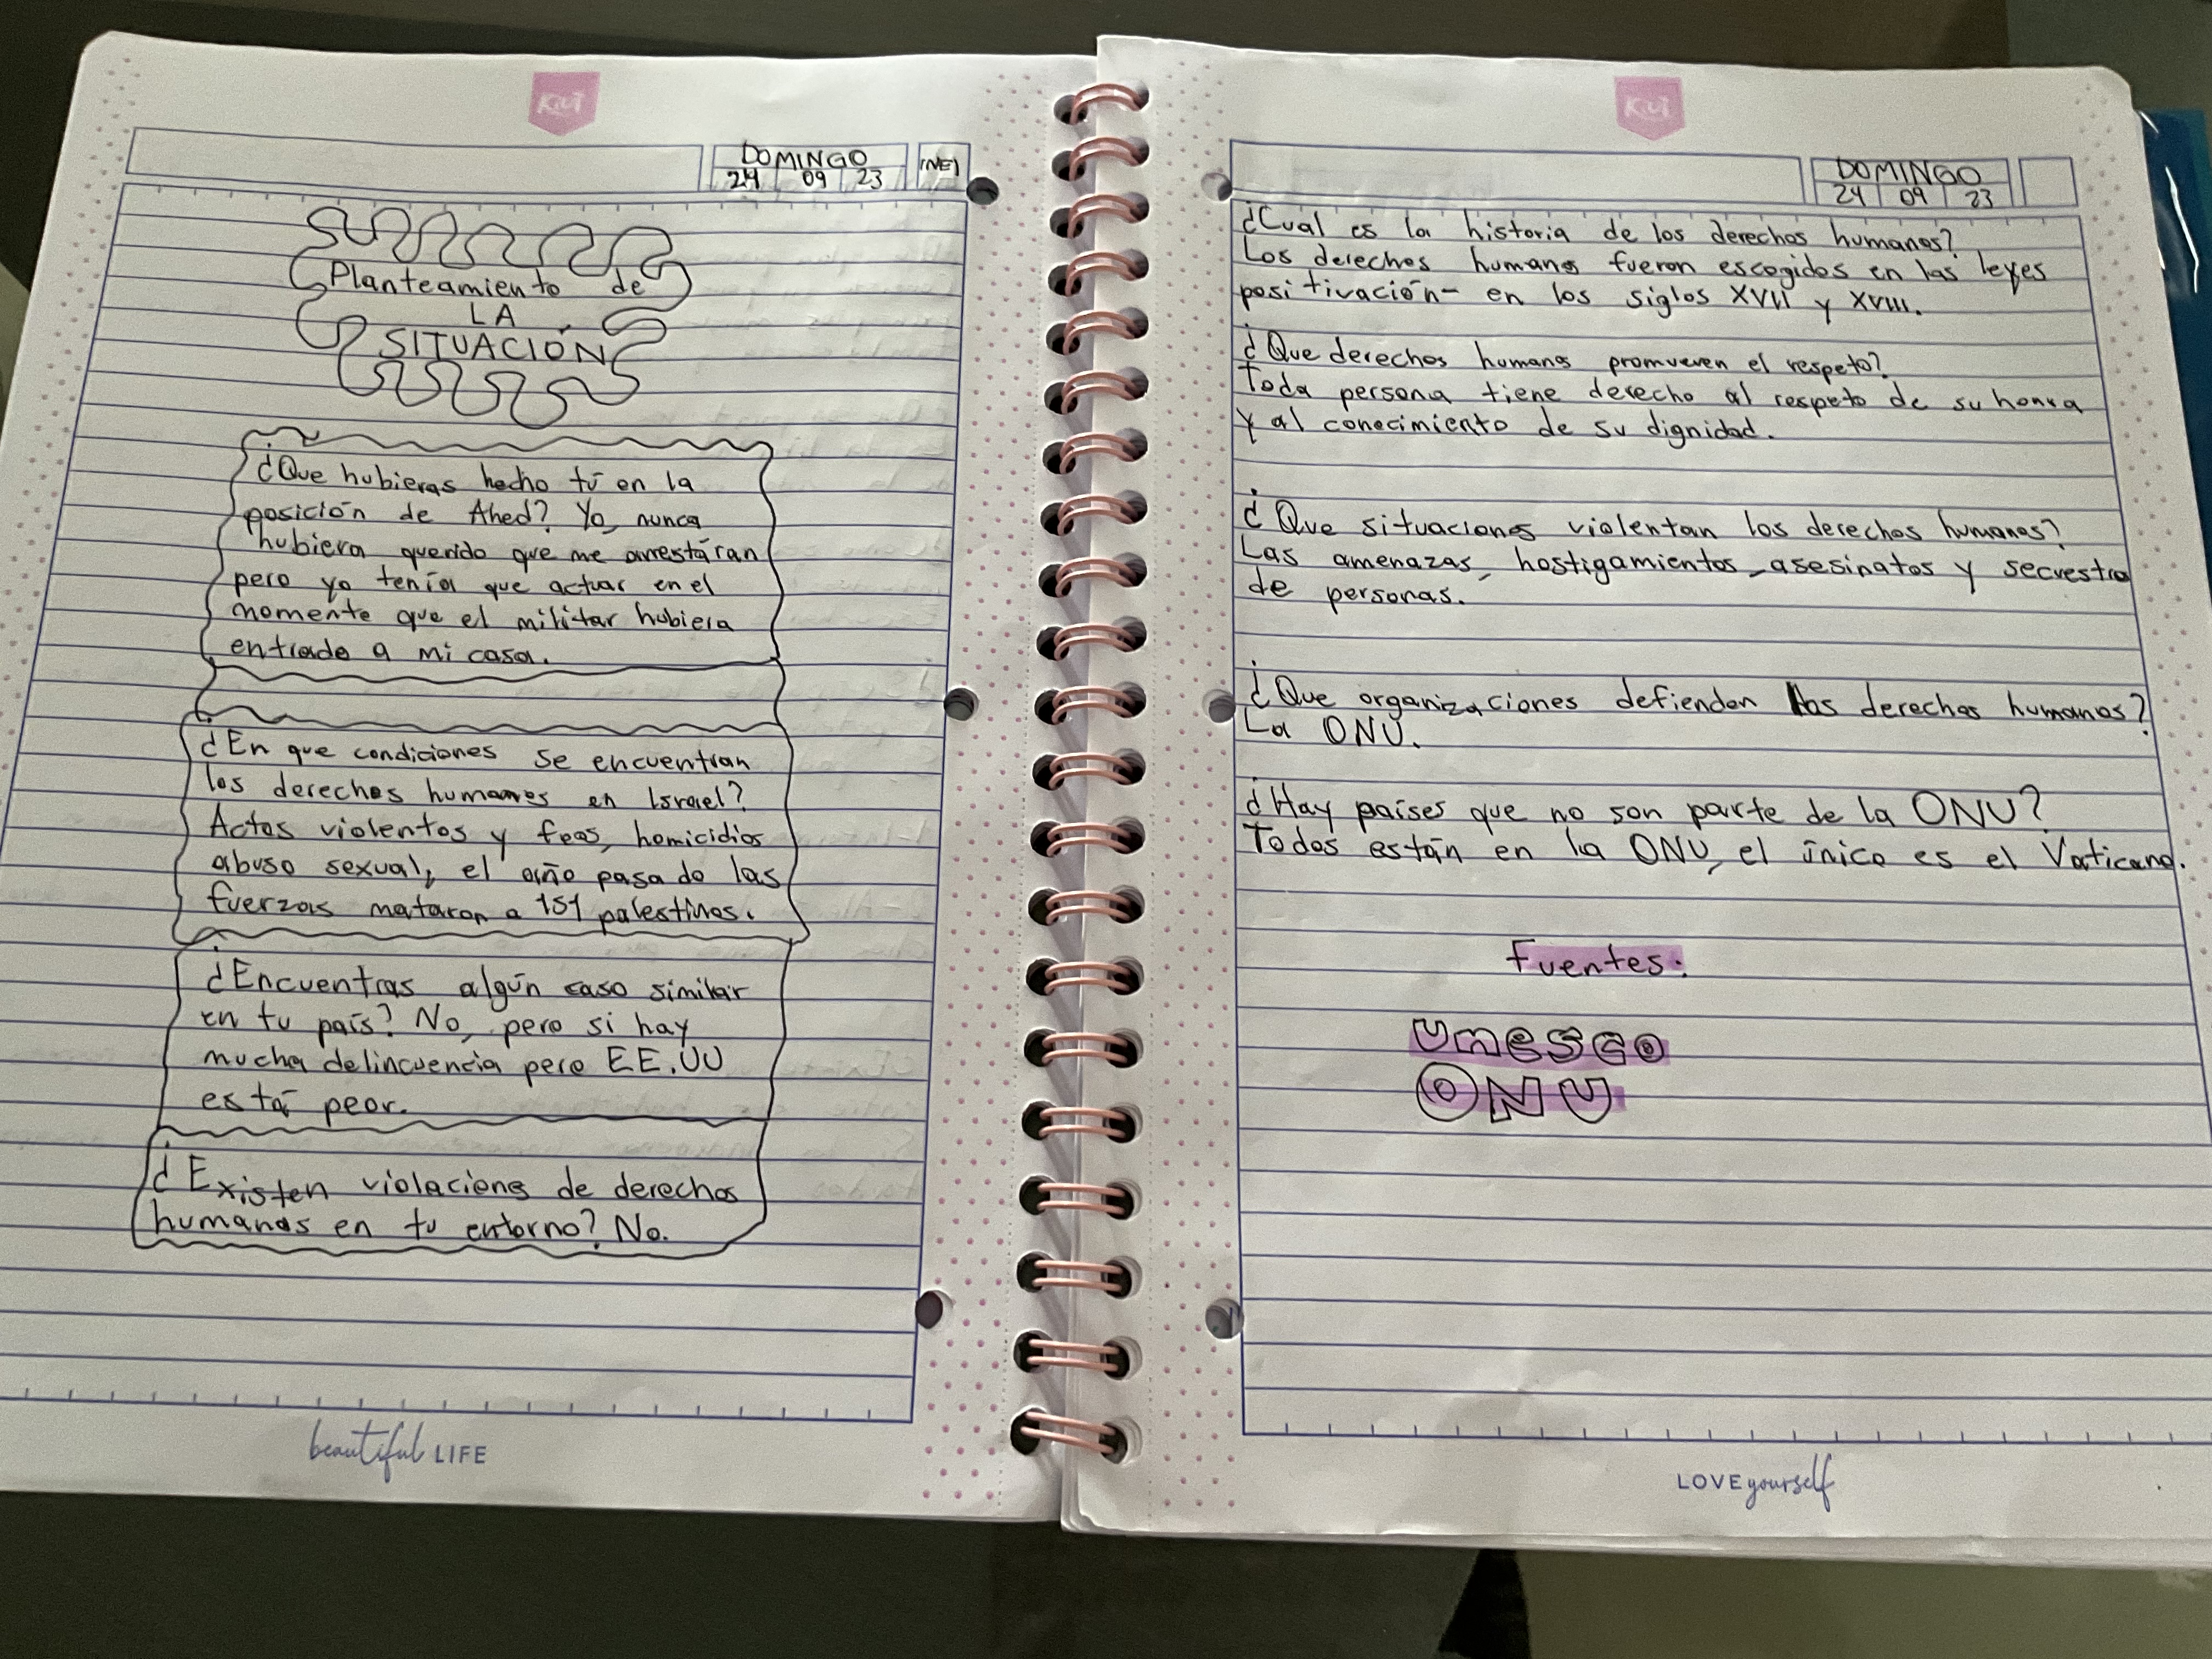 Kiut
DOMINGO
24 09 23
(NE)
Planteamiento de
LA
SITUACIÓN
¿Que hubieras hecho tú en la
posición de Ahed? Yo, nunca
hubiera querido que me arrestáran
pero yo tenía que actuar en el
momento que el militar hubiera
entrado a mi casa.
¿En que condiciones se encuentran
los derechos humanos en Israel?
Actos violentos y feos, homicidios
abuso sexual, el año pasado las
fuerzas mataron a 151 palestinos.
¿Encuentras algún caso similar
en tu país? No, pero si hay
mucha delincuencia pero EE.UU
está peor.
¿Existen violaciens de derechos
humanos en tu entorno? No.
beautiful LIFE
Kiut
DOMINGO
24 09 23
¿Cual es la historia de los derechos humanos?
Los derechos humans fueron escogidos en las leyes
positivación- en los siglos XVII y XVIII.
¿Que derechos humans promueven el respeto?
Toda persona tiene derecho al respeto de su honra
y al conecimiento de su dignidad.
¿Que situaciones violentan los derechos humanos?
Las amenazas, hostigamientos, asesinatos y secuestro
de personas.
¿Que organizaciones defienden los derechos humanos?
La ONU.
¿Hay países que no son parte de la ONU?
Todos están en la ONU, el único es el Vaticano.
Fuentes:
UNESCO
ONU
LOVE yourself